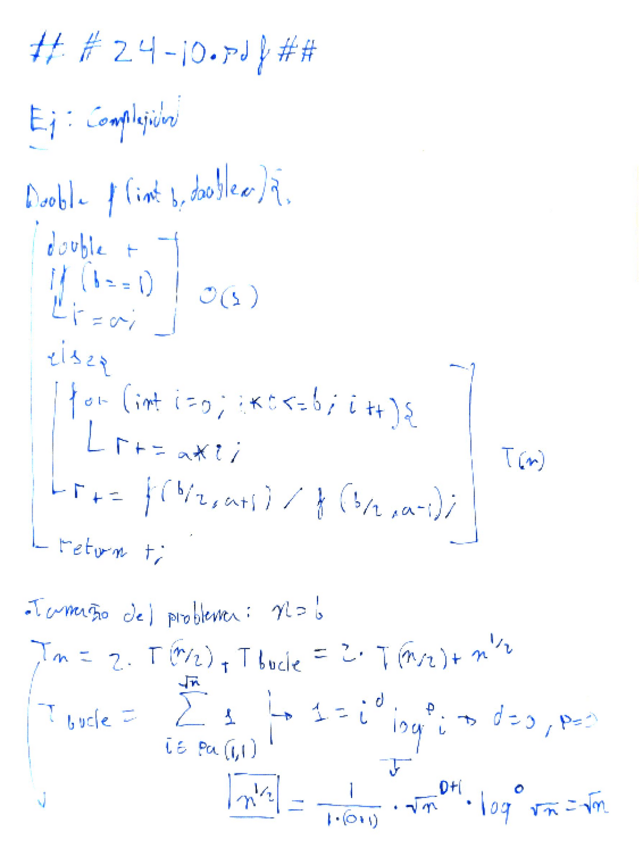 ## 24-10.pdf ##
Ej: Complejidad
Double f (int b, double a){
double r
if (b==1)
r=a;
O(1)
else{
for (int i=0; i*i<=b; i++){
r+= a*i;
T(n)
r+= f(b/2,a+1) / f(b/2,a-1);
return r;
.Tamaño del problema: n=b
Tn = 2. T(n/2)+ T bucle = 2. T(n/2)+ n^1/2
T bucle = √n ∑ i∈ Pa(1,1) 1 ↦ 1 = i^d log^p i → d=0, p=0
n^1/2 = 1/1.(0+1) · √n^0+1 · log^0 √n = √n